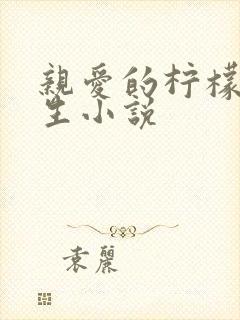 親愛的柠檬
生小說
袁麗